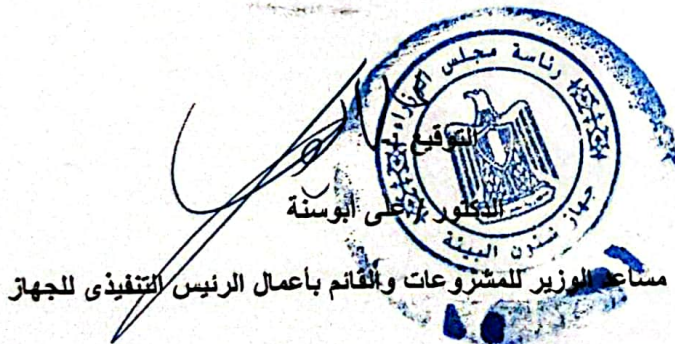 رئاسة مجلس الوزراء
جهاز شئون البيئة
التوقيع
الدكتور / على أبوسنة
مساعد الوزير للمشروعات والقائم بأعمال الرئيس التنفيذى للجهاز